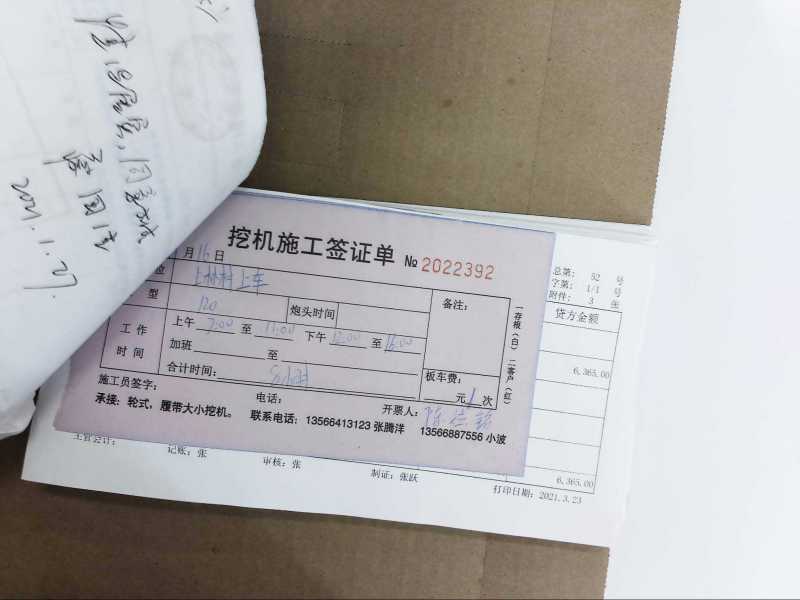 2021.1.27.
挖机施工签证单 № 2022392
月16日
上林村上车
型 120 炮头时间 备注:
工作时间
上午 7:00 至 11:00 下午 12:00 至 16:00
加班 至
合计时间: 8小时
板车费:
元 1 次
施工员签字: 电话: 开票人:
承接: 轮式,履带大小挖机。 联系电话: 13566413123 张腾洋 13566887556 小波
一存根(白) 二客户(红)
总第: 52 号
字第: 1/1 号
附件: 3 张
贷方金额
6,365.00
6,365.00
主管会计: 记账: 张 审核: 张 制证: 张跃 打印日期: 2021.3.23